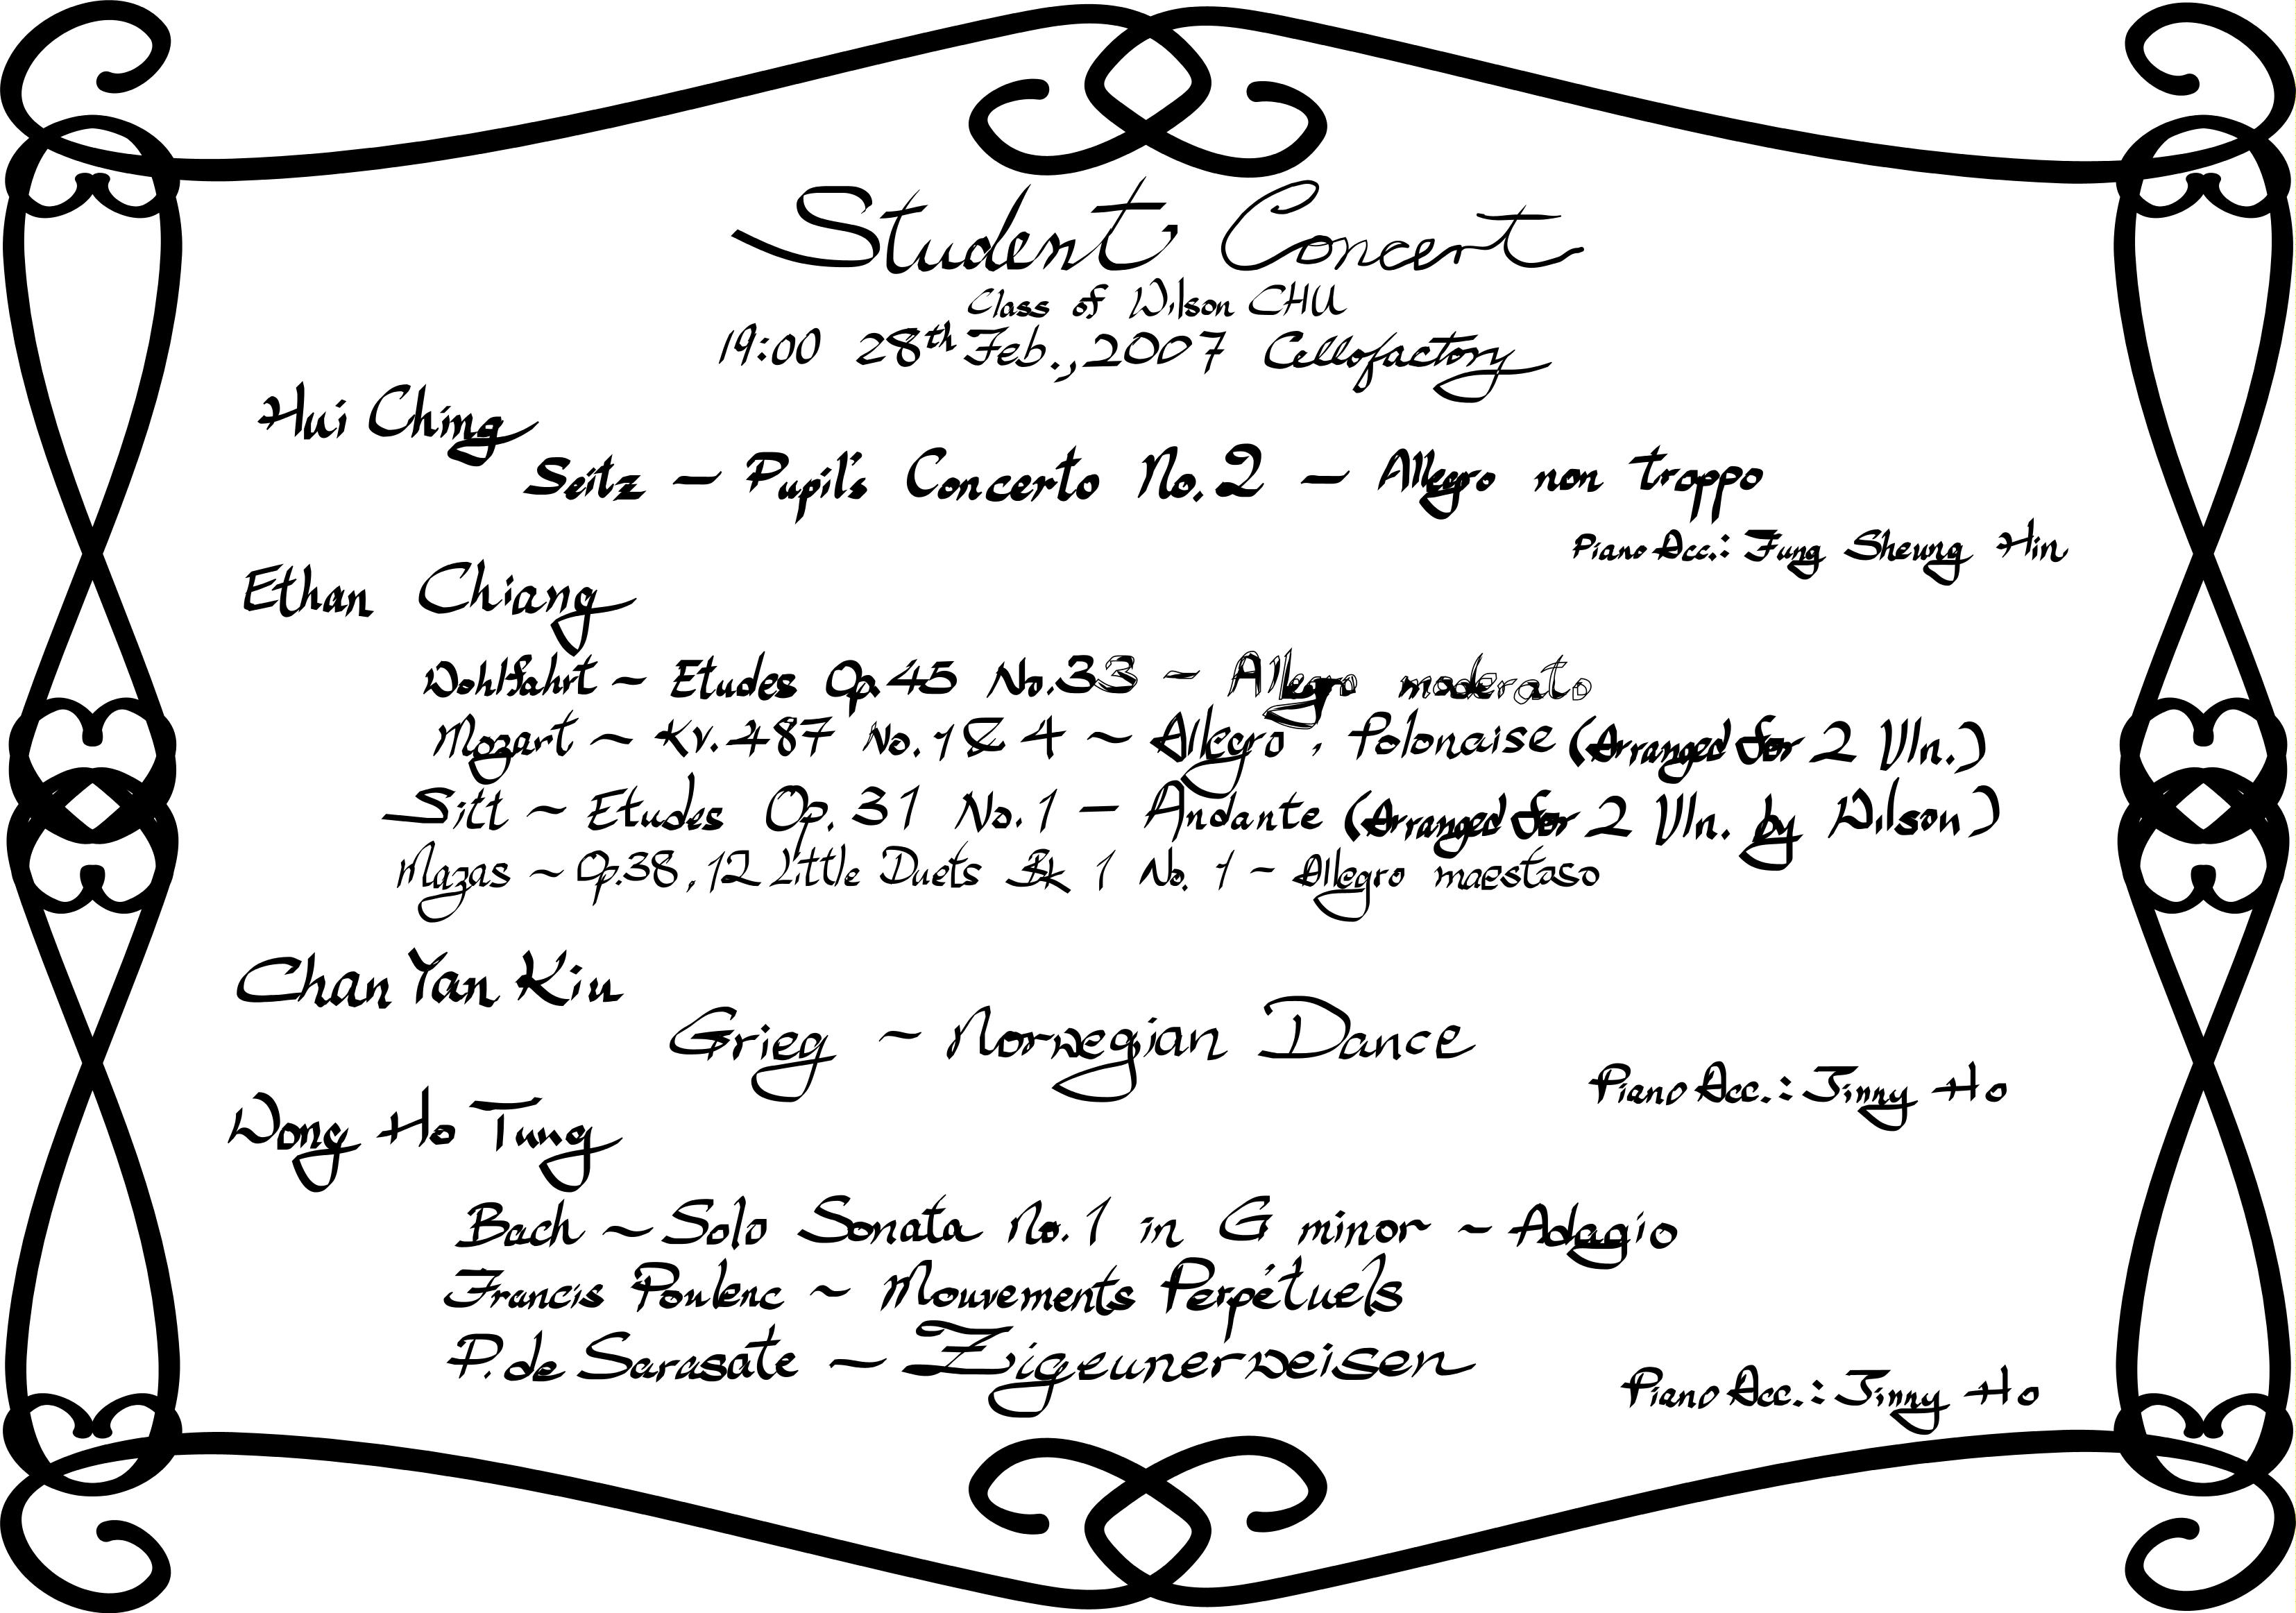 Student Concert
Class of Wilson CHU
19:00 28th Feb., 2007 Cellofactory
Hui Ching
Seitz – Pupil's Concerto No. 2 – Allegro non troppo
Piano Acc.: Fung Sheung Hin
Ethan Chiang
Wohlfahrt ~ Etudes Op. 45 No. 33 ~ Allegro moderato
Mozart ~ Kv. 487 No. 1 & 4 ~ Allegro, Polonaise (Arranged for 2 Vln.)
Sitt ~ Etudes Op. 31 No. 1 – Andante (Arranged for 2 Vln. by Wilson)
Mazas ~ Op.38, 12 Little Duets Bk 1 No. 1 ~ Allegro maestaso
Chan Yan Kiu
Grieg ~ Norwegian Dance
Piano Acc.: Jinny Ho
Wong Ho Tung
Bach ~ Solo Sonata No. 1 in G minor ~ Adagio
Francis Poulenc ~ Mouvements Perpétuels
P. de Sarasate ~ Zigeunerweisen
Piano Acc.: Jinny Ho